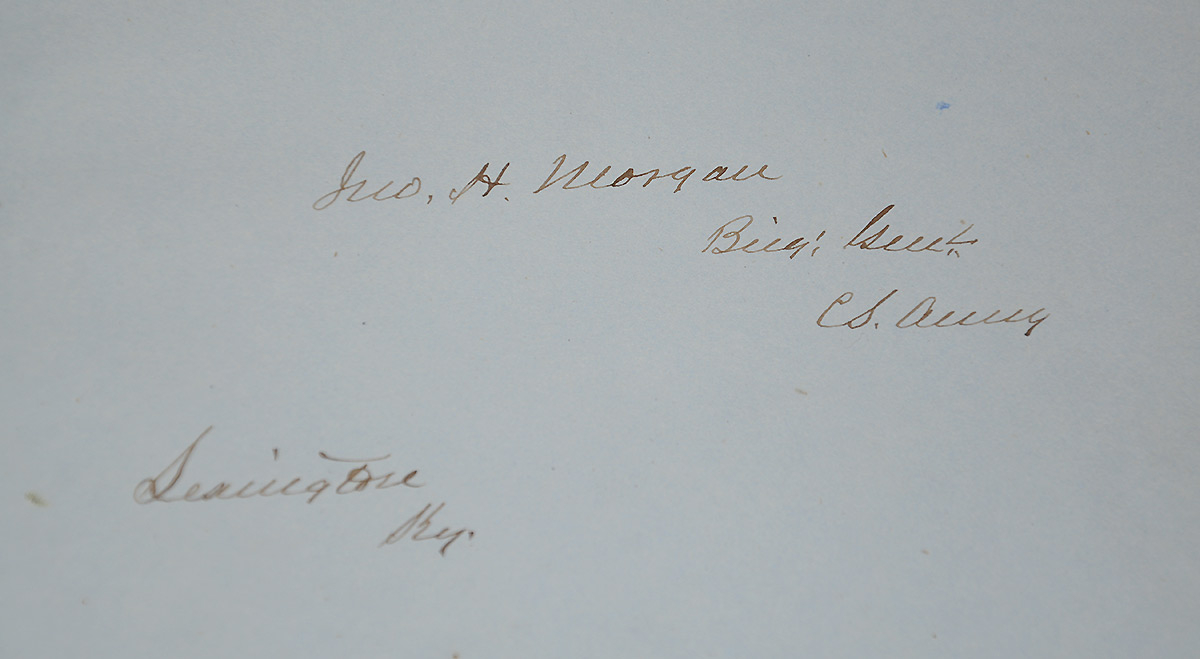 Jno. H. Morgan
Brig. Genl.
C.S. Army
Lexington
Ky.